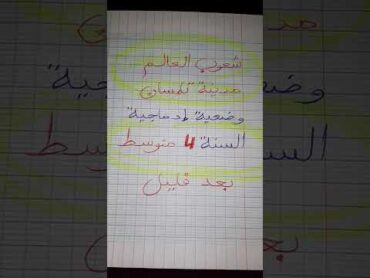 شعوب العالم
مدينة تلمسان
وضعية إدماجية
السنة 4 متوسط
بعد قليل